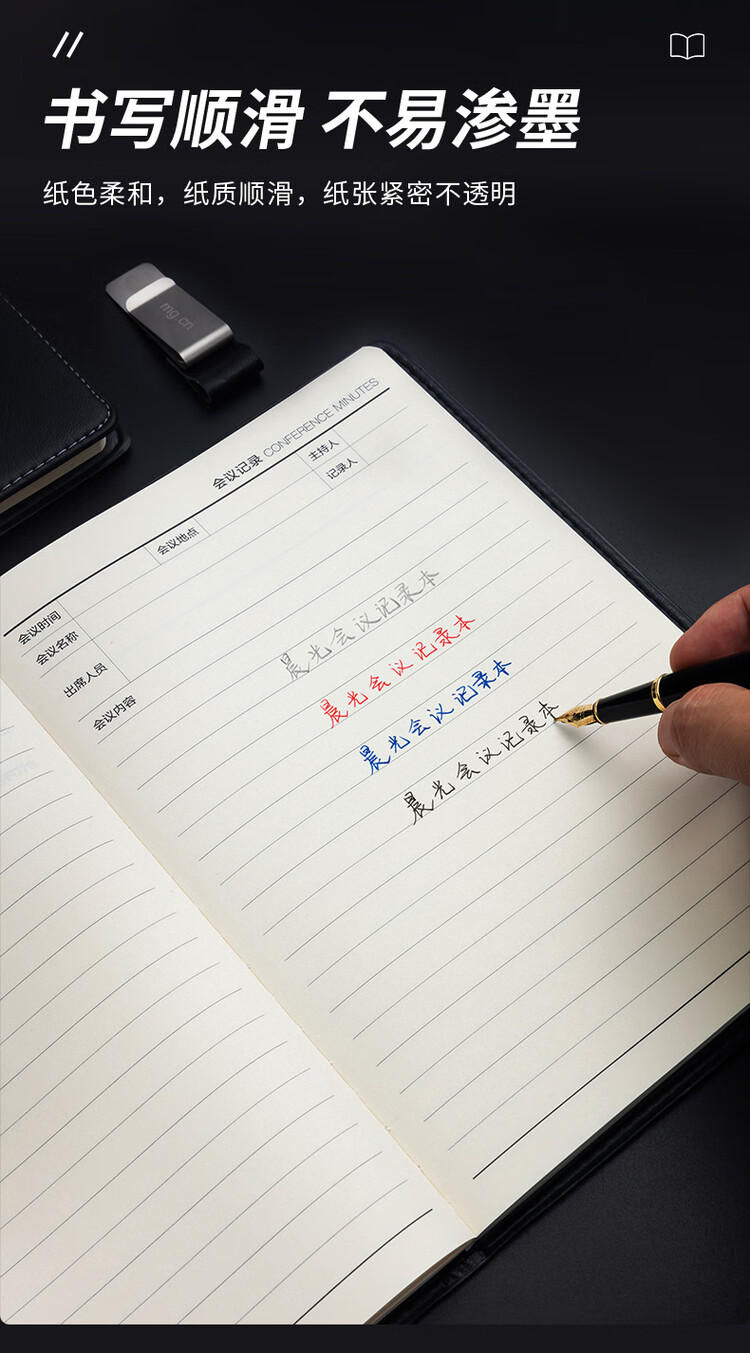 书写顺滑 不易渗墨
纸色柔和，纸质顺滑，纸张紧密不透明
mg.cn
会议记录 CONFERENCE MINUTES
主持人
记录人
会议地点
会议时间
会议名称
出席人员
会议内容
晨光会议记录本
晨光会议记录本
晨光会议记录本
晨光会议记录本